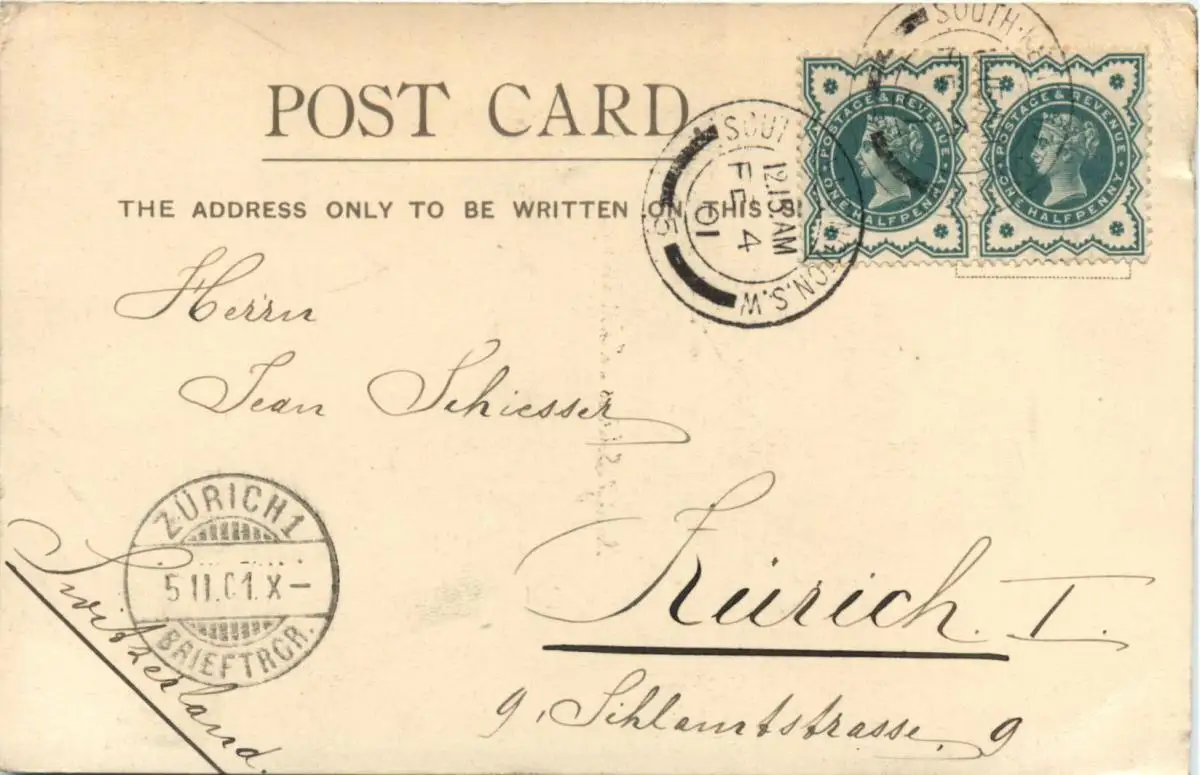 POST CARD.
THE ADDRESS ONLY TO BE WRITTEN ON THIS
SOUTH
POSTAGE & REVENUE
ONE HALFPENNY
POSTAGE & REVENUE
ONE HALFPENNY
SOUT
TON.S.W
12.15AM
FE 4
01
5
Herrn
Jean Schiesser
Zürich I.
9, Sihlamtstrasse, 9
Switzerland.
ZÜRICH 1
5 II.01.X–
BRIEFTRGR.